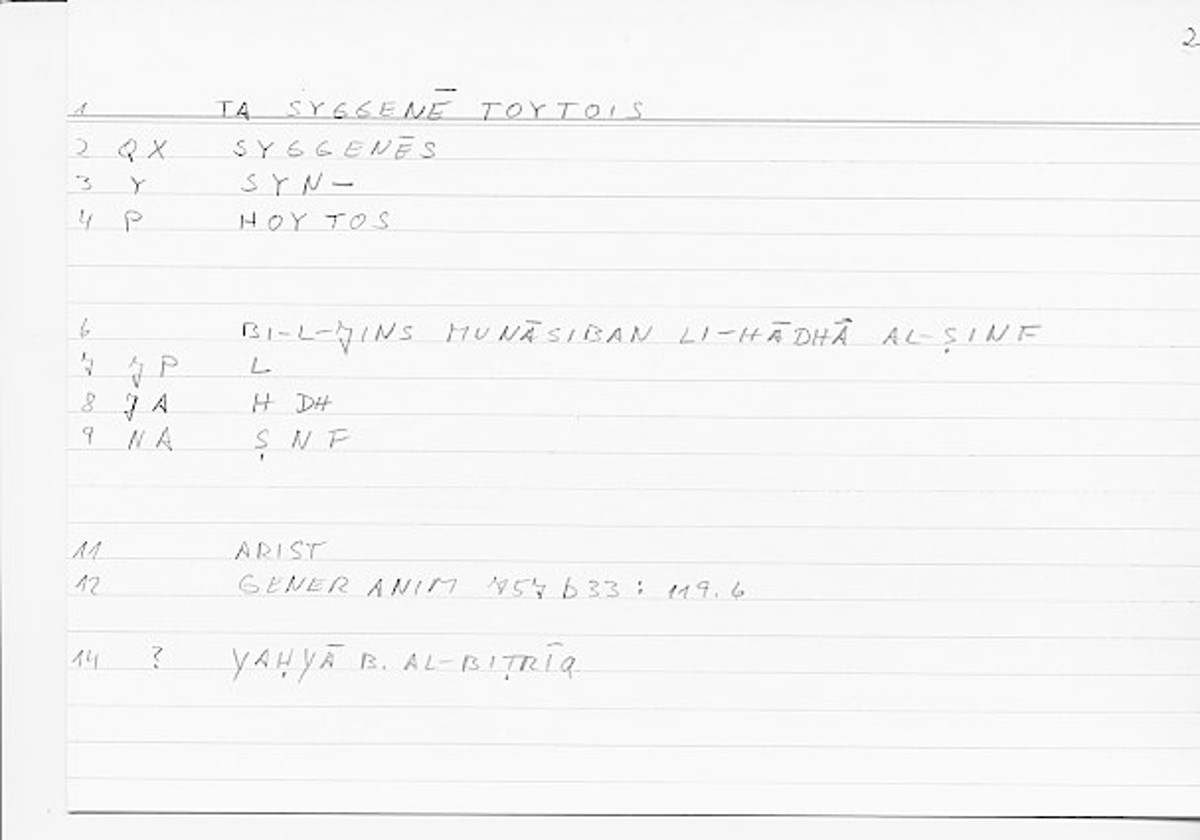 2
1 TA SYGGENĒ TOYTOIS
2 QX SYGGENĒS
3 Y SYN-
4 P HOYTOS
6 BI-L-JINS MUNĀSIBAN LI-HĀDHĀ AL-ṢINF
7 JP L
8 JA H DH
9 NA Ṣ N F
11 ARIST
12 GENER ANIM 757 b33 : 119.6
14 ? YAḤYĀ B. AL-BIṬRĪQ